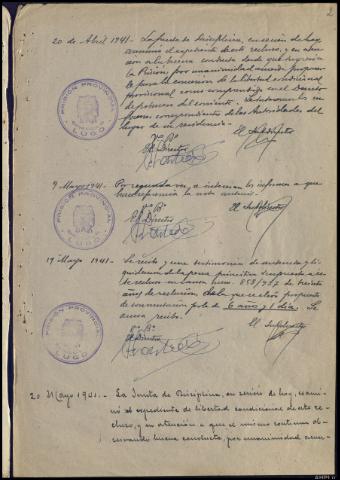 2
20 de Abril 1941.- La Junta de Disciplina, en sesión de hoy
examinó el expediente de este recluso, y en aten-
ción a la buena conducta desde que ingresó en
la Prisión por unanimidad acuerda proponer-
le para la concesión de la libertad condicional
provisional como comprendido en el Decreto
de primero del corriente. Se
formes correspondientes de las Autoridades del
lugar de su residencia.-
Vº Bº
El Director
El Subdirector
PRISIÓN PROVINCIAL
LUGO
9 Mayo 1941.- Por segunda vez, se interesan los informes a que
hace referencia la nota anterior.
Vº Bº
El Director
El Subdirector
PRISIÓN PROVINCIAL
LUGO
19 Mayo 1941.- Se recibe y une testimonio de sentencia y li-
quidación de la pena primitiva impuesta a es-
te recluso en causa núm. 858/937 de treinta
años de reclusión, de la que es
conmutación por la de 6 años y 1 día. Se
acusa recibo.
Vº Bº
El Director
El Subdirector
PRISIÓN PROVINCIAL
LUGO
20 Mayo 1941.- La Junta de Disciplina, en sesión de hoy, exami-
nó el expediente de libertad condicional de este re-
cluso, y en atención a que el mismo continua ob-
servando buena conducta, por unanimidad acuer-
AHPLu